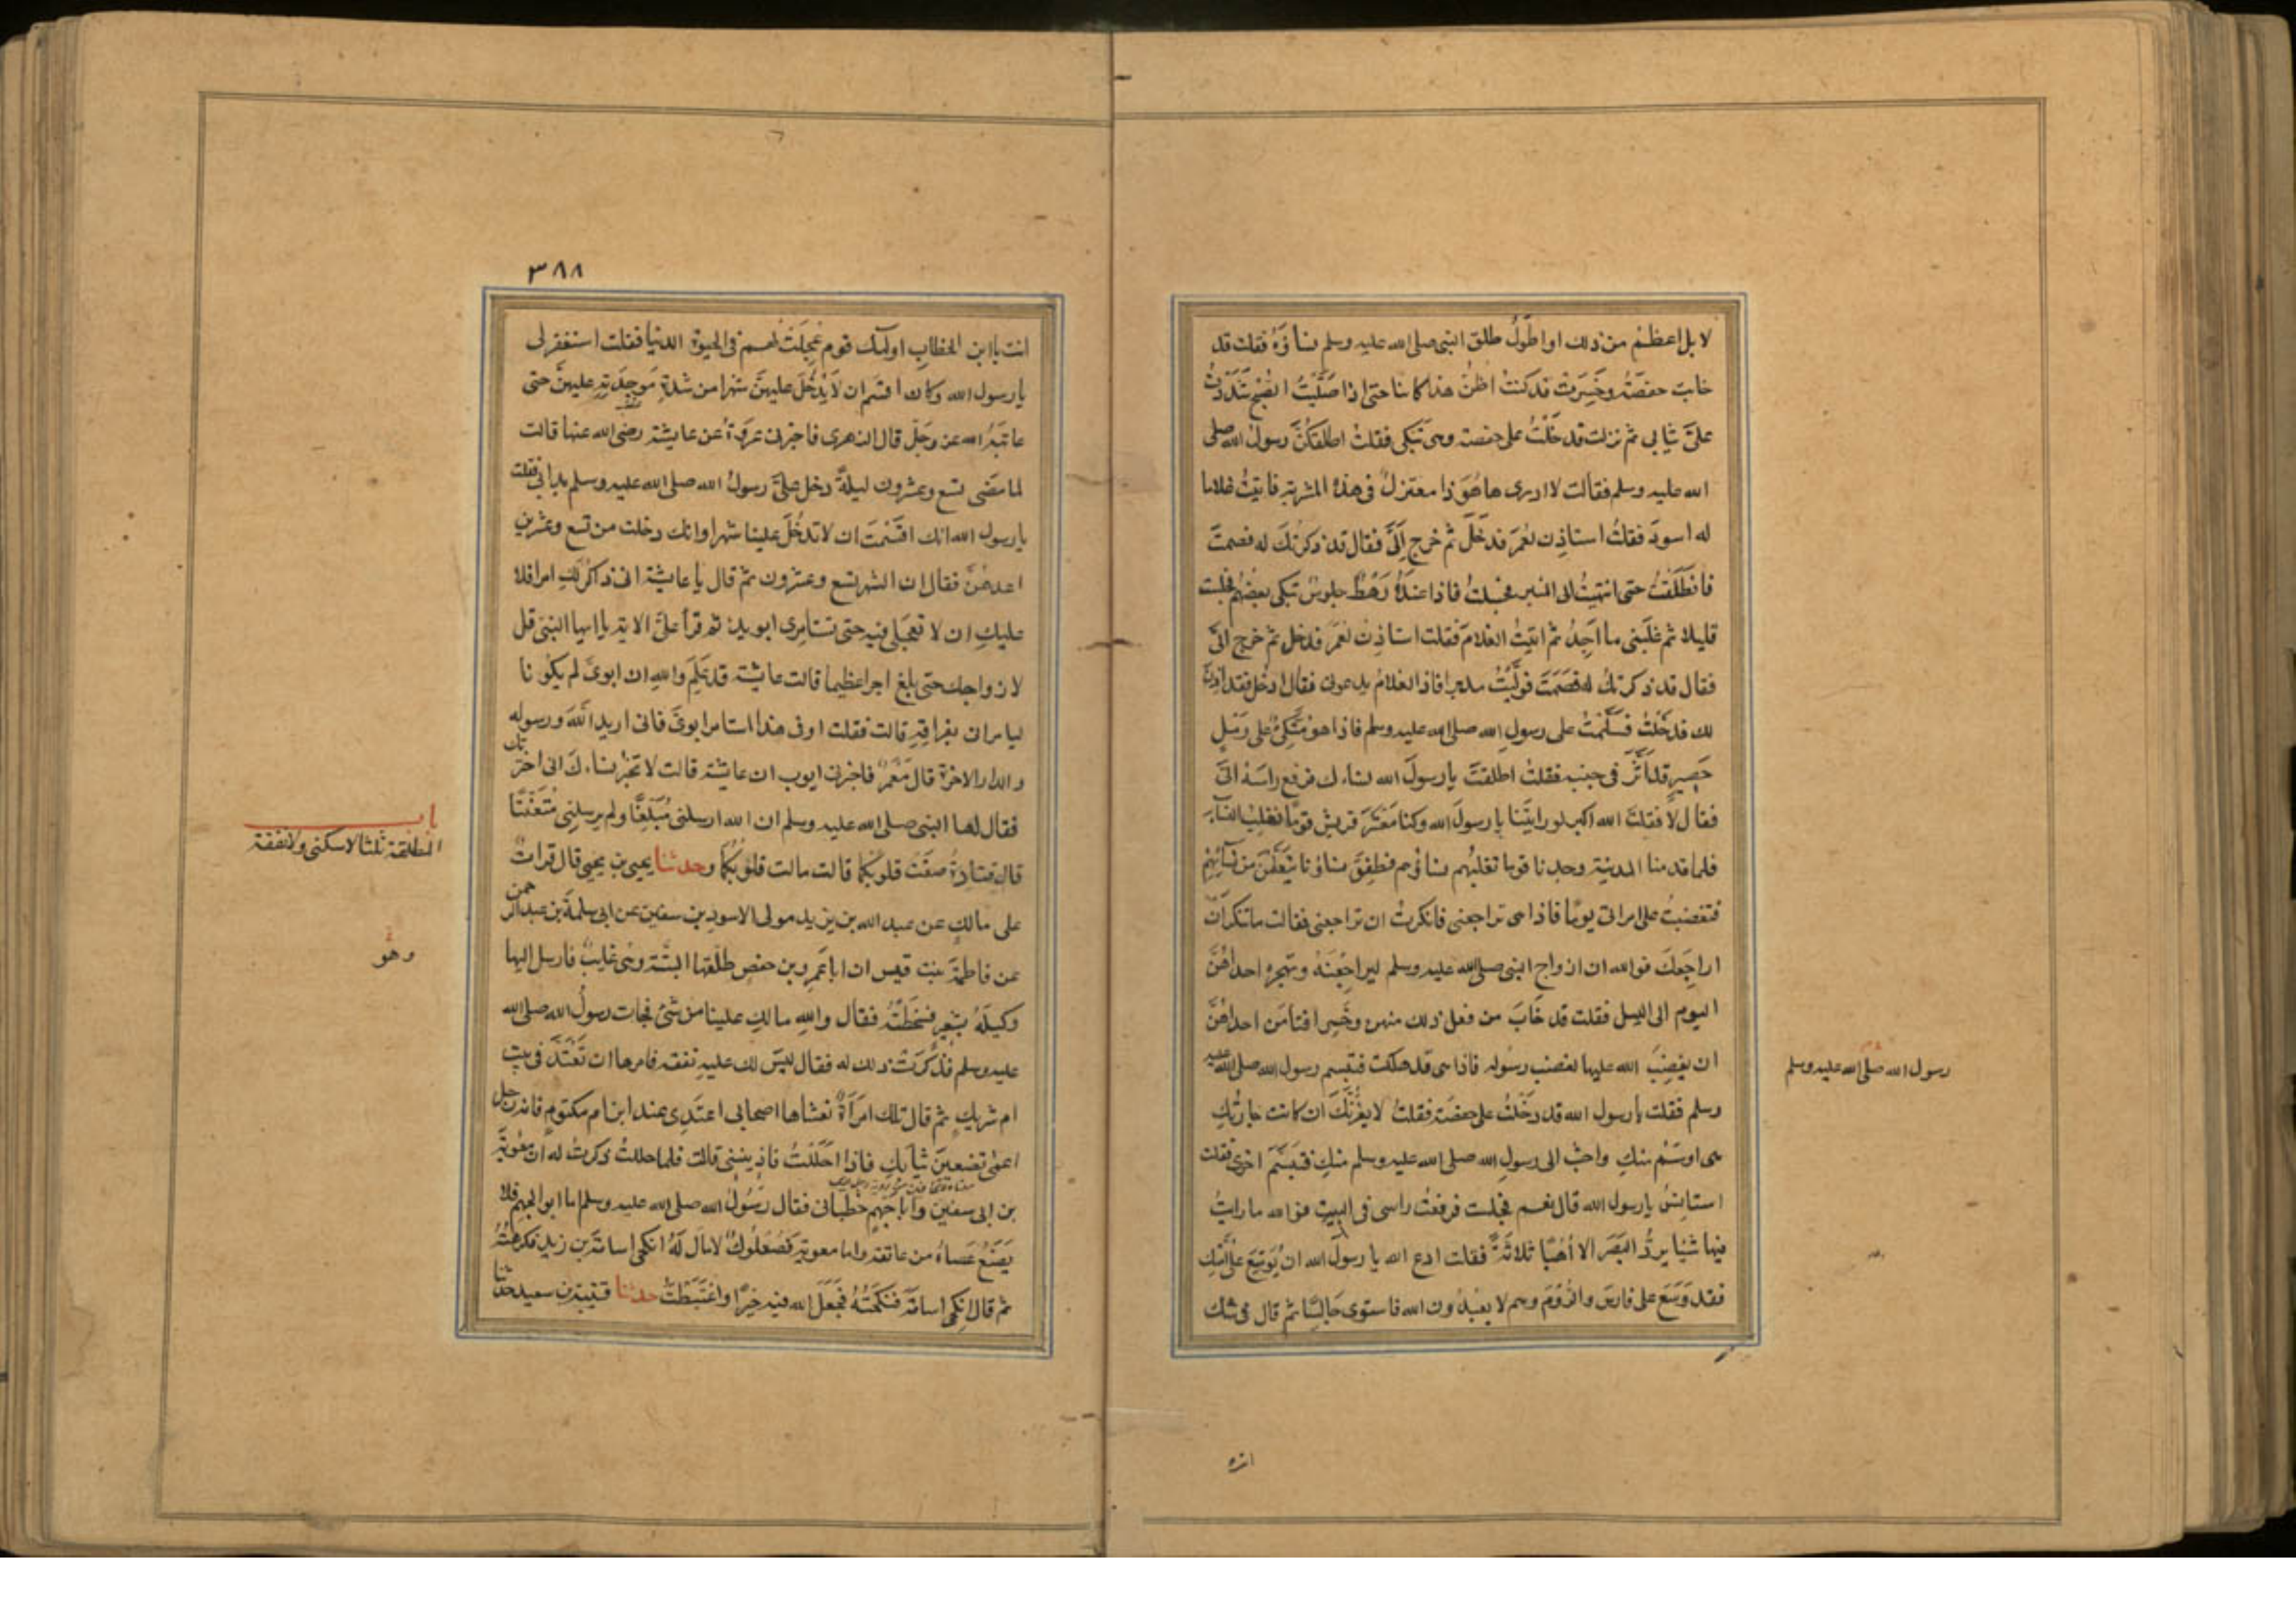 لا بل اعظم من ذلك واطول طلق النبي صلى الله عليه وسلم نساؤه فقلت قد
خابت حفصة وخسرت قد كنت اظن هذا كاينا حتى اذا صليت الصبح شددت
على ثيابي ثم نزلت فدخلت على حفصة وهى تبكى فقلت اطلقكن رسول الله صلى
الله عليه وسلم فقالت لا ادرى ها هو ذا معتزل فى هذه المشربة فاتيت غلاما
له اسود فقلت استاذن لعمر فدخل ثم خرج الى فقال قد ذكرتك له فصمت
فانطلقت حتى انتهيت الى المنبر فجلست فاذا عنده رهط جلوس تبكى بعضهم فجلست
قليلا ثم غلبنى ما اجد ثم اتيت الغلام فقلت استاذن لعمر فدخل ثم خرج الى
فقال قد ذكرتك له فصمت فوليت مدبرا فاذا الغلام يدعونى فقال ادخل فقد اذن
لك فدخلت فسلمت على رسول الله صلى الله عليه وسلم فاذا هو متكئ على رمل
حصير قد اثر فى جنبه فقلت اطلقت يا رسول الله نساءك فرفع راسه الى
فقال لا فقلت الله اكبر لو رايتنا يا رسول الله وكنا معشر قريش قوما نغلب النساء
فلما قدمنا المدينة وجدنا قوما تغلبهم نساؤهم فطفق نساؤنا يتعلمن من نسائهم
فتغضبت على امراتى يوما فاذا هى تراجعنى فانكرت ان تراجعنى فقالت ما تنكر ان
اراجعك فوالله ان ازواج النبى صلى الله عليه وسلم ليراجعنه وتهجره احداهن
اليوم الى الليل فقلت قد خاب من فعل ذلك منهن وخسر افتامن احداهن
ان يغضب الله عليها لغضب رسوله فاذا هى قد هلكت فتبسم رسول الله صلى الله عليه
رسول الله صلى الله عليه وسلم
وسلم فقلت يا رسول الله قد دخلت على حفصة فقلت لا يغرنك ان كانت جارتك
هى اوسم منك واحب الى رسول الله صلى الله عليه وسلم منك فتبسم اخرى فقلت
استانس يا رسول الله قال نعم فجلست فرفعت راسى فى البيت فوالله ما رايت
فيها شيئا يرد البصر الا أهبا ثلاثة فقلت ادع الله يا رسول الله ان يوسع على امتك
فقد وسع على فارس والروم وهم لا يعبدون الله فاستوى جالسا ثم قال فى شك
انت
٣٨٨
انت يا ابن الخطاب اولئك قوم عجلت لهم فى الحيوة الدنيا فقلت استغفر لى
يا رسول الله وكان اقسم ان لا يدخل عليهن شهرا من شدة موجدته عليهن حتى
عاتبه الله عز وجل قال الزهرى فاخبرنى عروة عن عايشة رضى الله عنها قالت
لما مضى تسع وعشرون ليلة دخل على رسول الله صلى الله عليه وسلم بدا بى فقلت
يا رسول الله انك اقسمت ان لا تدخل علينا شهرا وانك دخلت من تسع وعشرين
اعدهن فقال ان الشهر تسع وعشرون ثم قال يا عايشة انى ذاكر لك امرا فلا
عليك ان لا تعجلى فيه حتى تستامرى ابويك ثم قرأ على الاية يا ايها النبى قل
لازواجك حتى بلغ اجرا عظيما قالت عايشة قد علم والله ان ابوى لم يكونا
ليامرانى بفراقه قالت فقلت اوفى هذا استامر ابوى فانى اريد الله ورسوله
والدار الاخرة قال معمر فاخبرنى ايوب ان عايشة قالت لا تخبر نساءك انى اخترتك
فقال لها النبى صلى الله عليه وسلم ان الله ارسلنى مبلغا ولم يرسلنى متعنتا
باب
المطلقة ثلثا لا سكنى ولا نفقة
قال قتادة صغت قلوبكما قالت مالت قلوبكما وحدثنا يحيى بن يحيى قال قرات
على مالك عن عبد الله بن يزيد مولى الاسود بن سفين عن ابى سلمة بن عبد الرحمن
وهو
عن فاطمة بنت قيس ان ابا عمرو بن حفص طلقها البتة وهى غايب فارسل اليها
وكيله بشعير فسخطته فقال والله مالك علينا من شئ فجات رسول الله صلى الله
عليه وسلم فذكرت ذلك له فقال ليس لك عليه نفقة فامرها ان تعتد فى بيت
ام شريك ثم قال تلك امرأة تغشاها اصحابى اعتدى عند ابن ام مكتوم فانه رجل
اعمى تضعين ثيابك فاذا احللت فاذنينى قالت فلما حللت ذكرت له ان معوية
بن ابى سفين وابا جهم خطبانى فقال رسول الله صلى الله عليه وسلم اما ابو الجهم فلا
يضع عصاه من عاتقه واما معوية فصعلوك لا مال له انكحى اسامة بن زيد فكرهته
ثم قال انكحى اسامة فنكحته فجعل الله فيه خيرا واغتبطت حدثنا قتيبة بن سعيد حدثنا